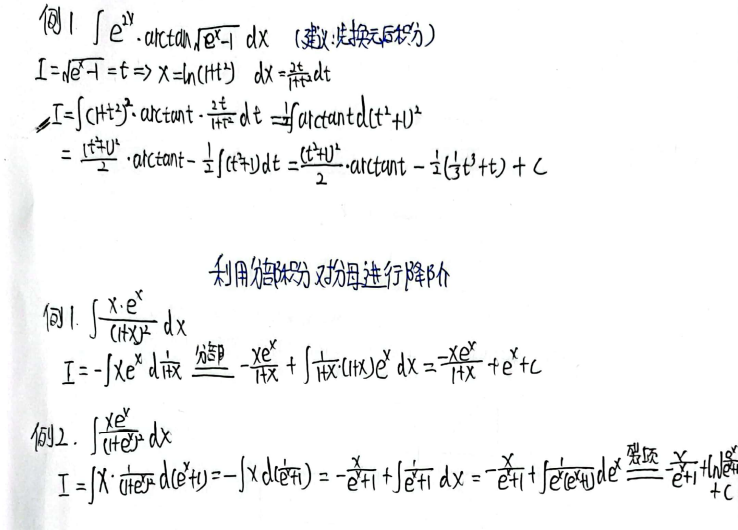 例1 ∫e^{2x}·arctan√(e^x-1) dx (建议:先换元后积分)
I=√(e^x-1)=t⇒x=ln(1+t²) dx=2t/(1+t²)dt
I=∫(1+t²)²·arctant·2t/(1+t²)dt=1/2∫arctant d(t²+1)²
=(t²+1)²/2·arctant-1/2∫(t²+1)dt=(t²+1)²/2·arctant-1/2(1/3t³+t)+C
利用分部积分对分母进行降阶
例1.∫x·e^x/(1+x)² dx
I=-∫xe^x d1/(1+x) 分部= -xe^x/(1+x)+∫1/(1+x)·(1+x)e^x dx=-xe^x/(1+x)+e^x+C
例2.∫xe^x/(1+e^x)² dx
I=∫x·1/(1+e^x)² d(e^x+1)=-∫x d(1/(e^x+1))=-x/(e^x+1)+∫1/(e^x+1) dx=-x/(e^x+1)+∫1/(e^x(e^x+1))de^x 裂项= -x/(e^x+1)+ln|e^x/(e^x+1)|
+C